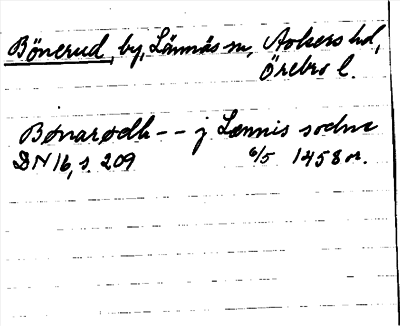 Bönerud, by, Lännäs sn, Askers hd,
Örebro l.
Bønarødh -- j Lænnis sodne
DN 16, s. 209 6/5 1458 or.